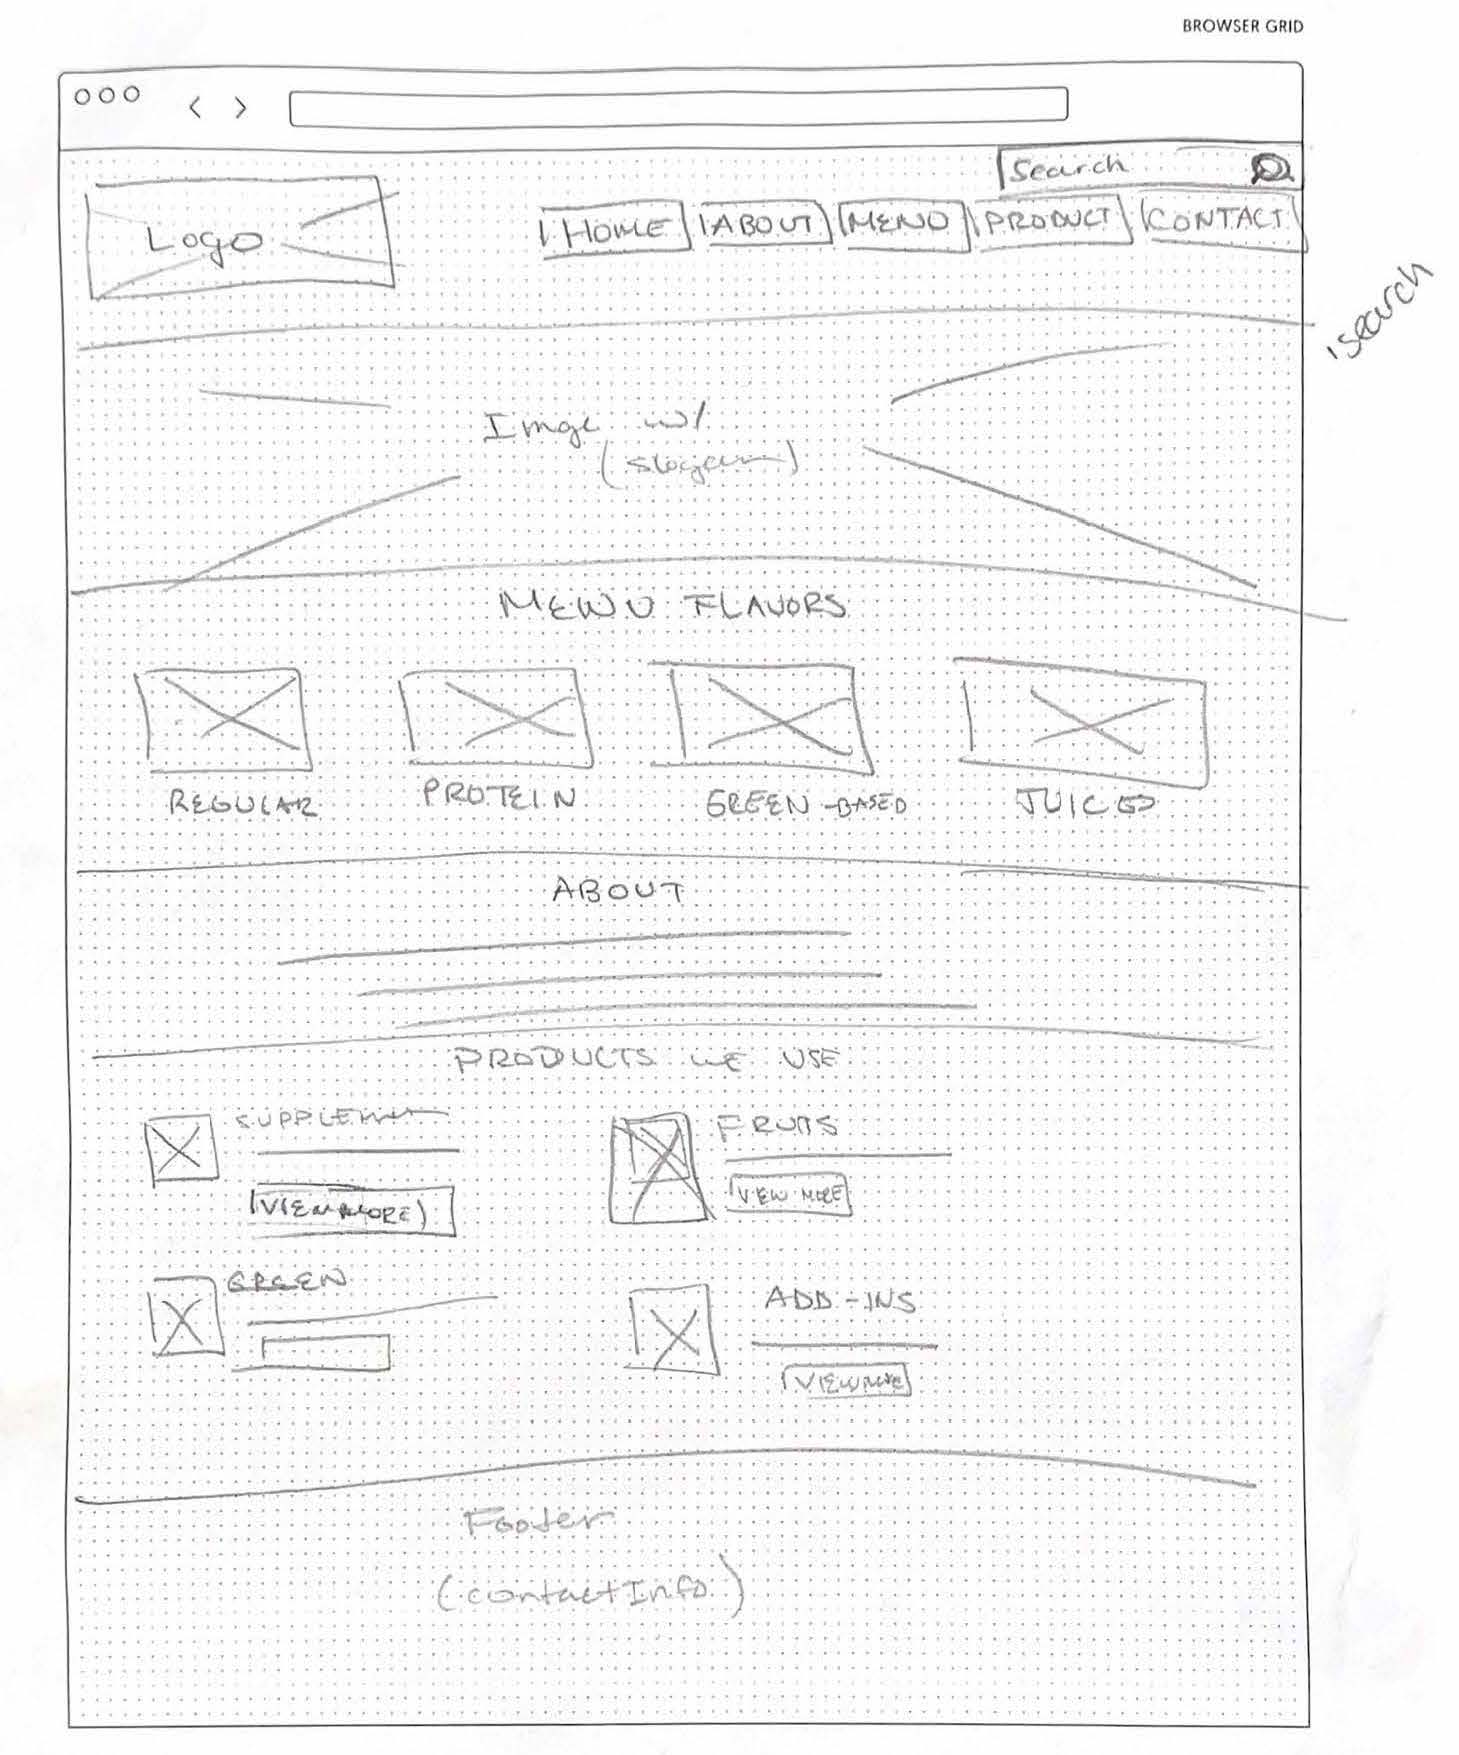 BROWSER GRID
Search
Logo
HOME ABOUT MENU PRODUCT CONTACT
search
Imge w/
(slogan)
MENU FLAVORS
REGULAR PROTEIN GREEN-BASED JUICES
ABOUT
PRODUCTS WE USE
SUPPLEMENT FRUITS
VIEW MORE VIEW MORE
GREEN ADD-INS
VIEW MORE
Footer
(contact Info)